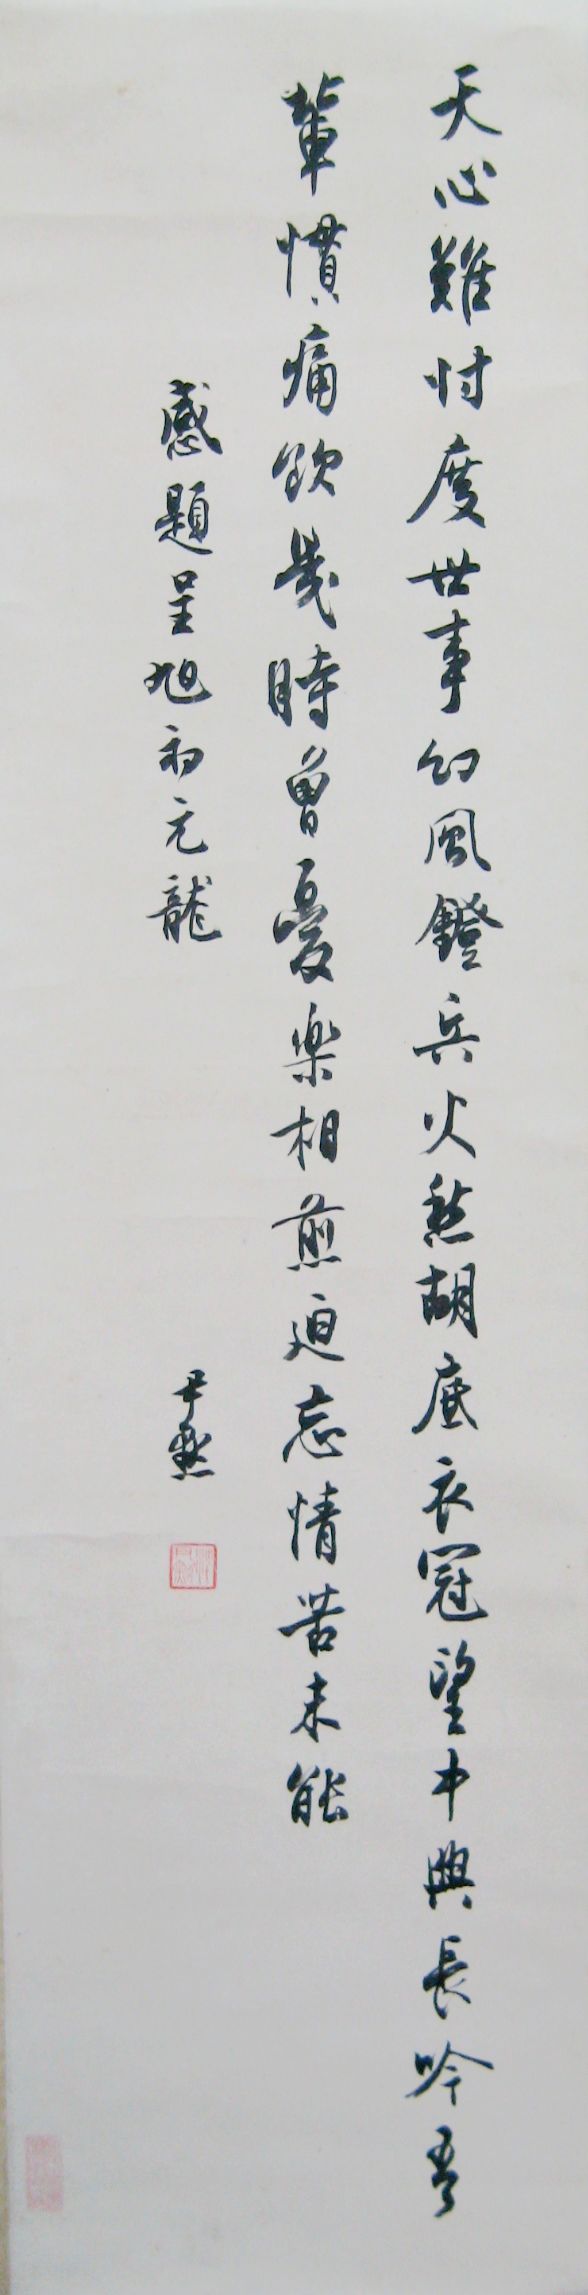 天心難忖度世事幻風鐙兵火愁胡底衣冠望中興長吟吾
輩慣痛飲幾時曾憂樂相煎迫忘情苦未能
感題呈旭初元龍
尹默